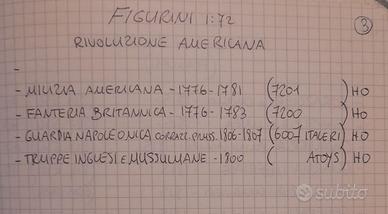 FIGURINI 1:72
3
RIVOLUZIONE AMERICANA
-
- MILIZIA AMERICANA - 1776 - 1781 (7201 ) HO
- FANTERIA BRITANNICA - 1776 - 1783 (7200 ) HO
- GUARDIA NAPOLEONICA CORAZZ. PRUSS. 1806-1807 (6007 ITALERI) HO
- TRUPPE INGLESI E MUSSULMANE - 1800 ( ATOYS) HO
subito